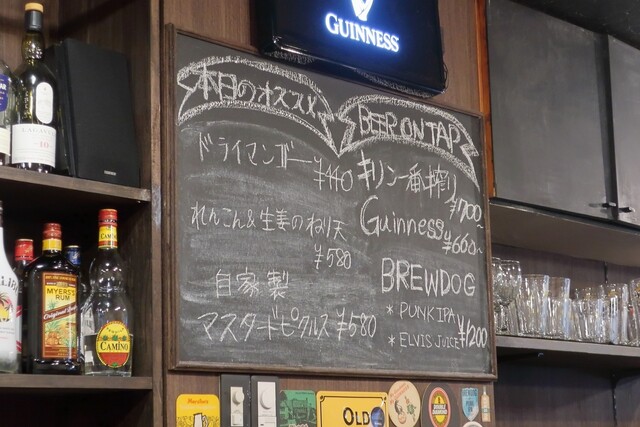 GUINNESS
本日のオススメ
ドライマンゴー ¥440
れんこん&生姜のねり天
¥580
自家製
マスタードピクルス ¥580
BEER ON TAP
キリン一番搾り
¥700~
Guinness
¥660~
BREWDOG
* PUNKIPA
* ELVIS JUICE ¥1200
MYERS'S
RUM
Original
CAMINO
OLD
DOUBLE
DIAMOND